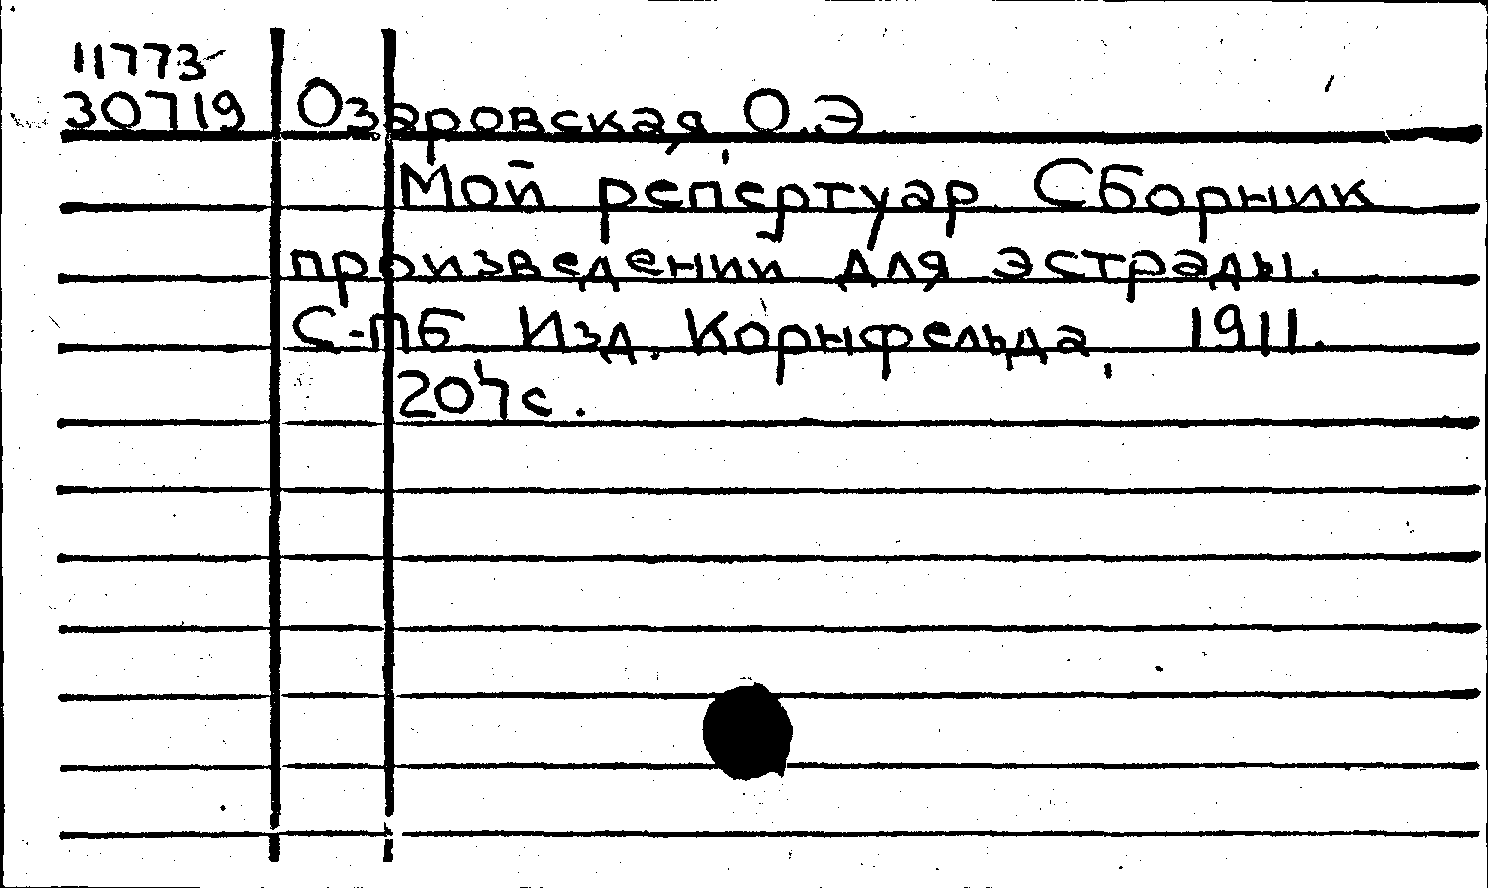 11773
30719 Озаровская, О.Э
Мой репертуар Сборник
произведений для эстрады.
С-ПБ Изд. Корнфельда, 1911.
207с.